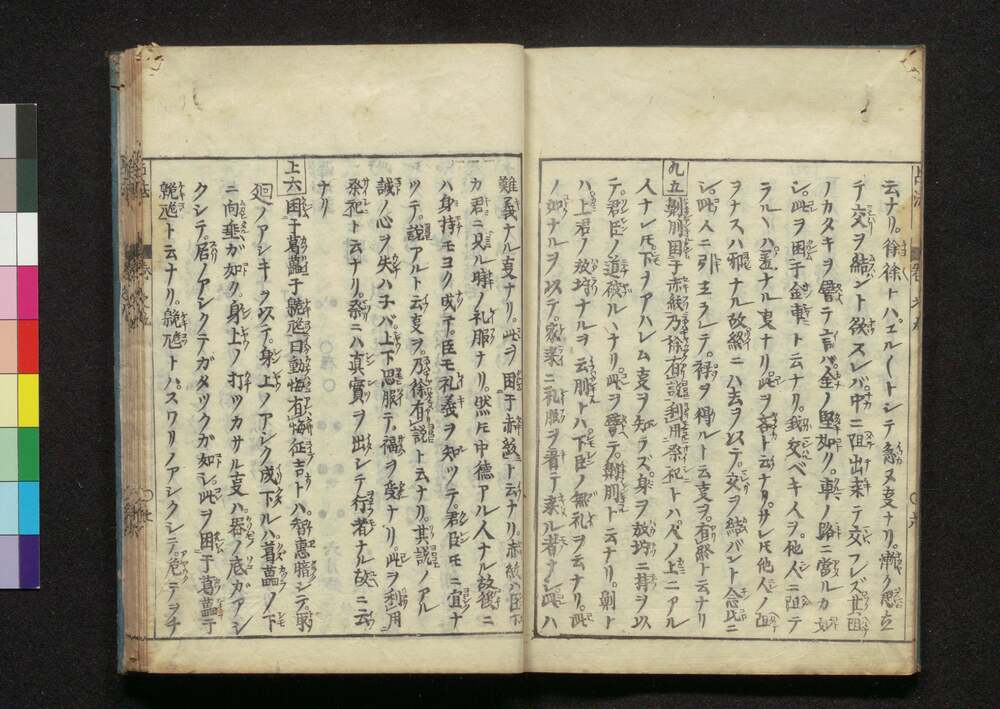 云ナリ。徐徐トハエル〱トシテ急ヌ叓ナリ。漸ク思立
テ交ヲ結ント欲スレバ中ニ阻出来テ交フレズ其阻
ノカタキヲ譬テ言バ金ノ堅如ク。車ノ路ニ當ルカ如
シ。此ヲ困于金車ト云ナリ。我交ベキ人ヲ。他人ニ阻テ
ラルヽハ羞ナル叓ナリ此ヲ吝ト云ナリ。サレ𪜈他人ノ阻
ヲナスハ邪ナル故終ニハ去ヲ以テ。交ヲ結バント念比ニ
シ。此人ニ引立ラレテ。禄ヲ得ルト云叓ヲ。有終ト云ナリ
九五劓刖困于赤紱乃徐有説利用祭祀トハ人ノ上ニアル
人ナレ𪜈下ヲアハレム叓ヲ知ラズ。身ヲ放埒ニ持ヲ以
テ。君臣ノ道破ルハナリ。此ヲ譬テ。劓刖ト云ナリ。劓ト
ハ。上君ノ放埒ナルヲ云刖トハ。下臣ノ無礼ヲ云ナリ。此
ノ如ナルヲ以テ。家来ニ礼服ヲ着テ来ル者ナシ此ハ
難義ナル叓ナリ。此ヲ困于赤紱ト云ナリ赤紱ハ臣下
カ君ニ見ル時ノ礼服ナリ。然𪜈中德アル人ナル故後ニ
ハ身持モヨク成テ。臣モ礼義ヲ知ツテ。君臣モニ宜ナ
ツテ。説アルト云叓ヲ。乃徐有説ト云ナリ。其説ノアル
誠ノ心ヲ失ハ子バ。上下思服テ。福ヲ受ナリ。此ヲ利用
祭祀ト云ナリ。祭ニハ真實ヲ出シテ行者ナル故ニ云
ナリ
上六困于葛藟于臲卼曰動悔有悔征吉トハ。智恵暗シテ取
廻ノアシキヲ以テ。身上ノアシク成下ルハ葛藟ノ下
ニ向垂ガ如ク。身上ノ打ツカサル叓ハ。器ノ底ガアシ
クシテ。居ノアシクテガタツクガ如シ。此ヲ困于葛藟于
臲卼ト云ナリ。臲卼トハスワリノアシクシテ。危テヲチ